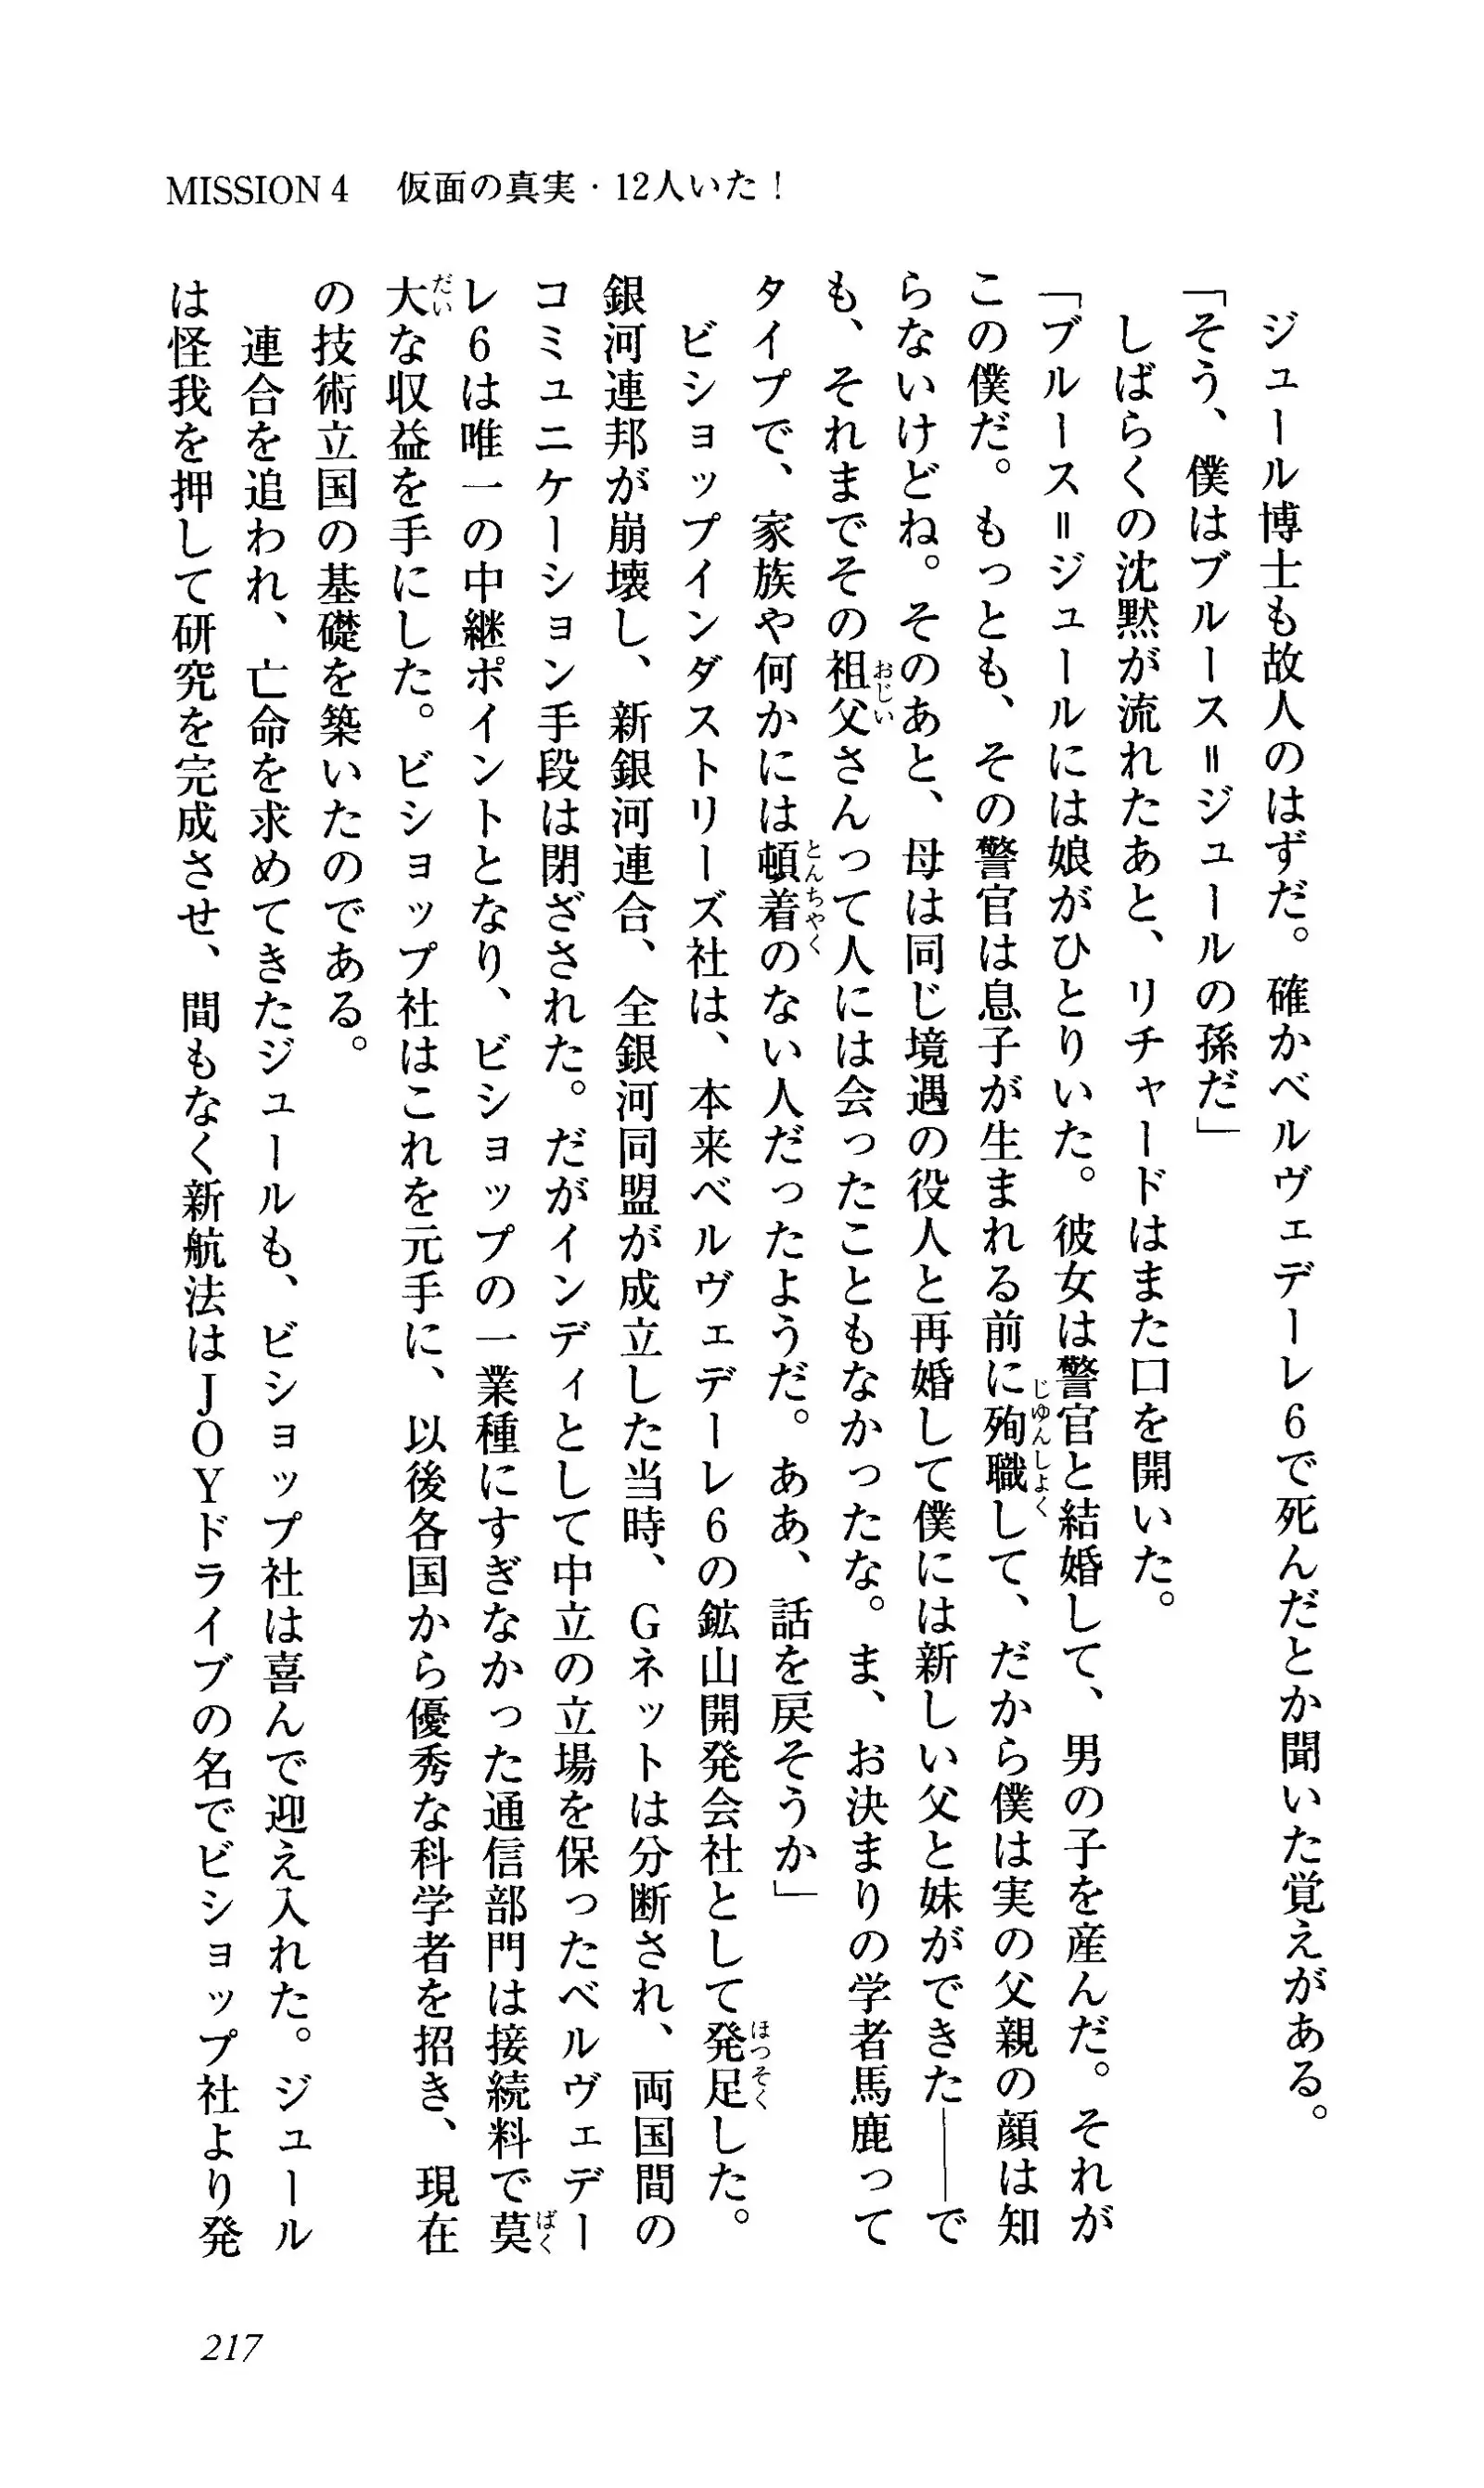 MISSION 4　仮面の真実・12人いた！
ジュール博士も故人のはずだ。確かベルヴェデーレ6で死んだとか聞いた覚えがある。
「そう、僕はブルース＝ジュールの孫だ」
しばらくの沈黙が流れたあと、リチャードはまた口を開いた。
「ブルース＝ジュールには娘がひとりいた。彼女は警官と結婚して、男の子を産んだ。それが
この僕だ。もっとも、その警官は息子が生まれる前に殉職して、だから僕は実の父親の顔は知
らないけどね。そのあと、母は同じ境遇の役人と再婚して僕には新しい父と妹ができた――で
も、それまでその祖父さんって人には会ったこともなかったな。ま、お決まりの学者馬鹿って
タイプで、家族や何かには頓着のない人だったようだ。ああ、話を戻そうか」
ビショップインダストリーズ社は、本来ベルヴェデーレ6の鉱山開発会社として発足した。
銀河連邦が崩壊し、新銀河連合、全銀河同盟が成立した当時、Gネットは分断され、両国間の
コミュニケーション手段は閉ざされた。だがインディとして中立の立場を保ったベルヴェデー
レ6は唯一の中継ポイントとなり、ビショップの一業種にすぎなかった通信部門は接続料で莫
大な収益を手にした。ビショップ社はこれを元手に、以後各国から優秀な科学者を招き、現在
の技術立国の基礎を築いたのである。
連合を追われ、亡命を求めてきたジュールも、ビショップ社は喜んで迎え入れた。ジュール
は怪我を押して研究を完成させ、間もなく新航法はJOYドライブの名でビショップ社より発
217